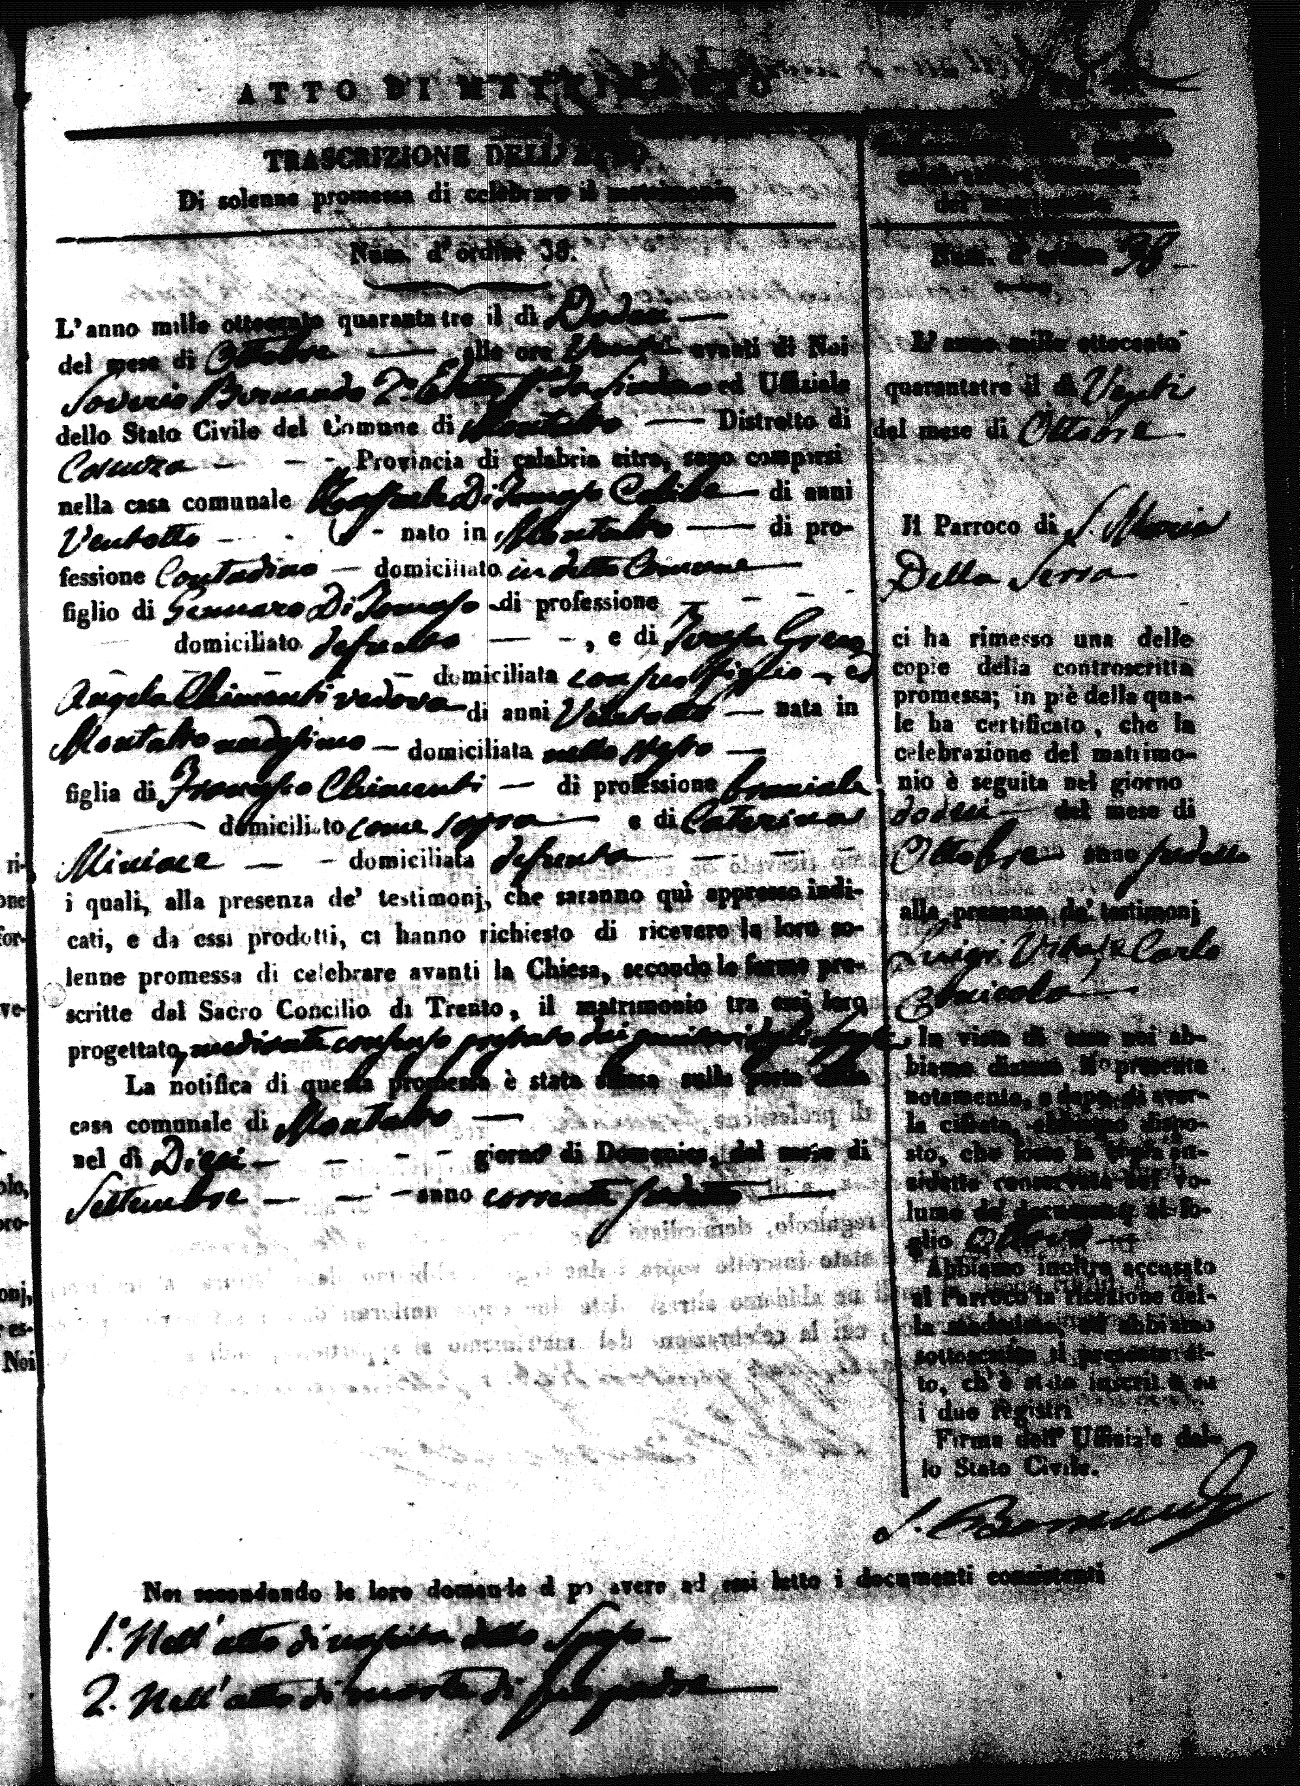 ATTO DI MATRIMONIO
TRASCRIZIONE DELL' ATTO
Di solenne promessa di celebrare il matrimonio
Num. d'ordine 38.
L'anno mille ottocento quarantatre il dì Dodeci
del mese di Ottobre alle ore Venti avanti di Noi
Saverio Bernardo 2.º Eletto ed Uffiziale
dello Stato Civile del Comune di Montalto Distretto di
Cosenza Provincia di calabria citra, sono comparsi
nella casa comunale Raffaele Di Tomaso di anni
Ventotto nato in Montalto di pro-
fessione Contadino domiciliato in detto Comune
figlio di Gennaro Di Tomaso di professione
domiciliato defunto, e di Teresa Greco
domiciliata con suo figlio ed
Angela Chimenti vedova di anni Ventotto nata in
Montalto medesimo domiciliata nello stesso
figlia di Francesco Chimenti di professione bracciale
domiciliato come sopra e di Caterina
Miniace domiciliata defunta
i quali, alla presenza de' testimonj, che saranno quì appresso indi-
cati, e da essi prodotti, ci hanno richiesto di ricevere la loro so-
lenne promessa di celebrare avanti la Chiesa, secondo le forme pre-
scritte dal Sacro Concilio di Trento, il matrimonio tra essi loro
progettato, mediante consenso prestato dai genitori degli sposi
La notifica di questa promessa è stata affissa sulla porta della
casa comunale di Montalto
nel dì Dieci giorno di Domenica, del mese di
Settembre anno corrente
Noi secondando le loro domande d po avere ad essi letto i documenti consistenti
1.º Nell'atto di nascita dello Sposo
2. Nell'atto di morte di suo padre
del matrimonio
Num. d'ordine 38
L'anno mille ottocento
quarantatre il dì Venti
del mese di Ottobre
Il Parroco di S. Maria
Della Serra
ci ha rimesso una delle
copie della controscritta
promessa; in piè della qua-
le ha certificato, che la
celebrazione del matrimo-
nio è seguita nel giorno
dodeci del mese di
Ottobre anno sudetto
alla presenza de' testimonj
Luigi Carlo
In vista di esso noi ab-
biamo disteso il presente
notamento, e dopo di aver-
la cifrata, abbiamo dispo-
sto, che fosse la copia su-
cidetta conservata nel vo-
lume de' documenti al fo-
glio Ottavo
Abbiamo inoltre accusato
al Parroco la ricezione del-
la medesima, ed abbiamo
sottoscritto il presente at-
to, ch'è stato inscritto su
i due registri
Firma dell' Uffiziale del-
lo Stato Civile.
S. Bernardo
ri-
one
for-
ve-
olo,
pro-
onj,
es-
Noi